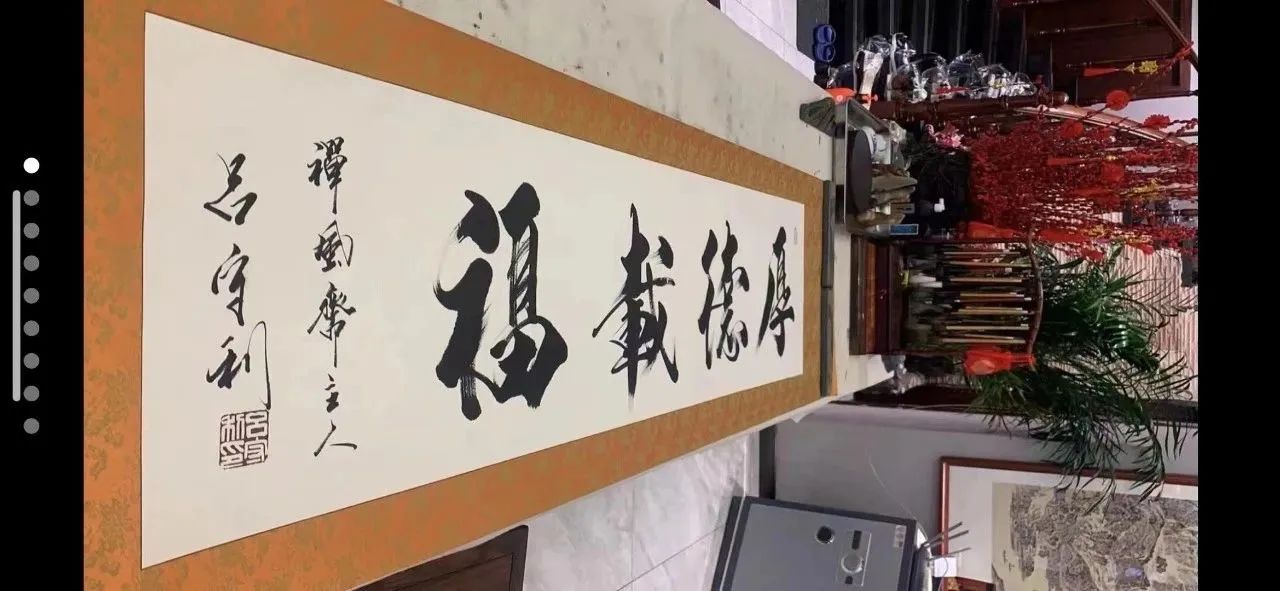 厚德載福
禪風齋主人
呂守利
呂守利印